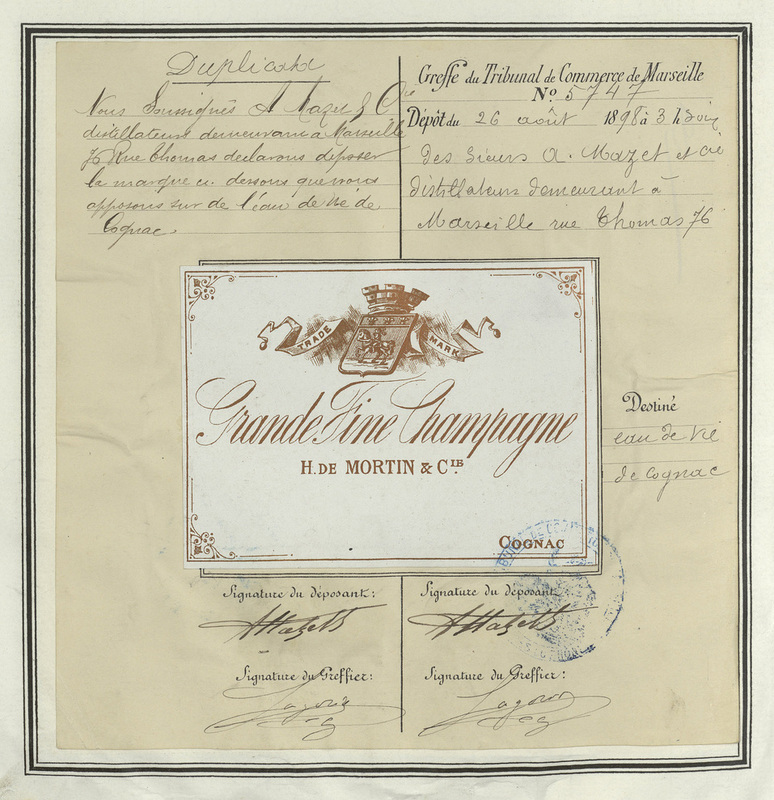 Duplicata
Nous Soussignés A Mazet & Cie
distillateurs demeurant à Marseille
76 Rue Thomas declarons déposer
la marque ci. dessous que nous
apposons sur de l'eau de vie de
Cognac.
Greffe du Tribunal de Commerce de Marseille
No. 5747
Dépôt du 26 août 1898 à 3 h Soir
des Sieurs A. Mazet et cie
distillateurs demeurant à
Marseille rue Thomas 76
TRADE MARK
Grande Fine Champagne
H. DE MORTIN & CIE.
COGNAC
Destiné
eau de vie
de cognac
Signature du déposant:
AMazet
Signature du Greffier:
Signature du déposant
AMazet
Signature du Greffier: